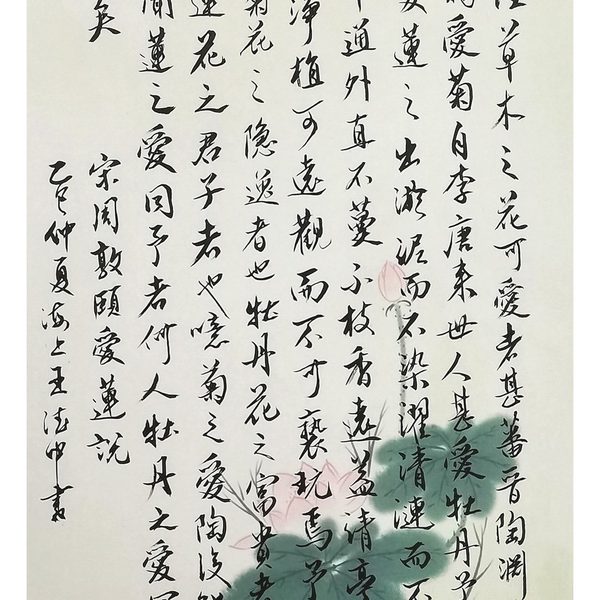 草木之花可愛者甚蕃晉陶渊
愛菊自李唐来世人甚愛牡丹予
愛蓮之出淤泥而不染濯清漣而不
通外直不蔓不枝香遠益清亭
淨植可遠觀而不可褻玩焉予
菊花之隐逸者也牡丹花之富貴者
蓮花之君子者也噫菊之愛陶後
聞蓮之愛同予者何人牡丹之愛
矣
宋周敦頤愛蓮説
乙巳仲夏海上王書